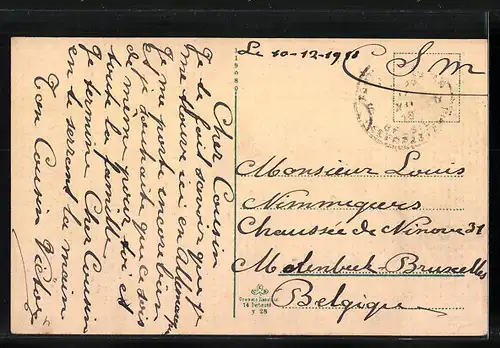 Le 10-12-1918
C S m
Cher Cousin
Je te fait savoir que je
me trouve ici en Allemagne
que je me porte encore bien
et je souhaite que ce sois
de meme pour toi et
toute la famille.
Je termine Cher Cousin
en te serrant la main
Ton Cousin Victor
Monsieur Louis
Nimmegeers
Chaussée de Ninove 31
Molenbeek-Bruxelles
Belgique